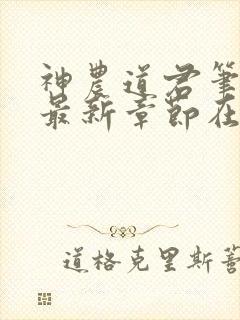 神農道君筆
最新章節在
道格克里斯